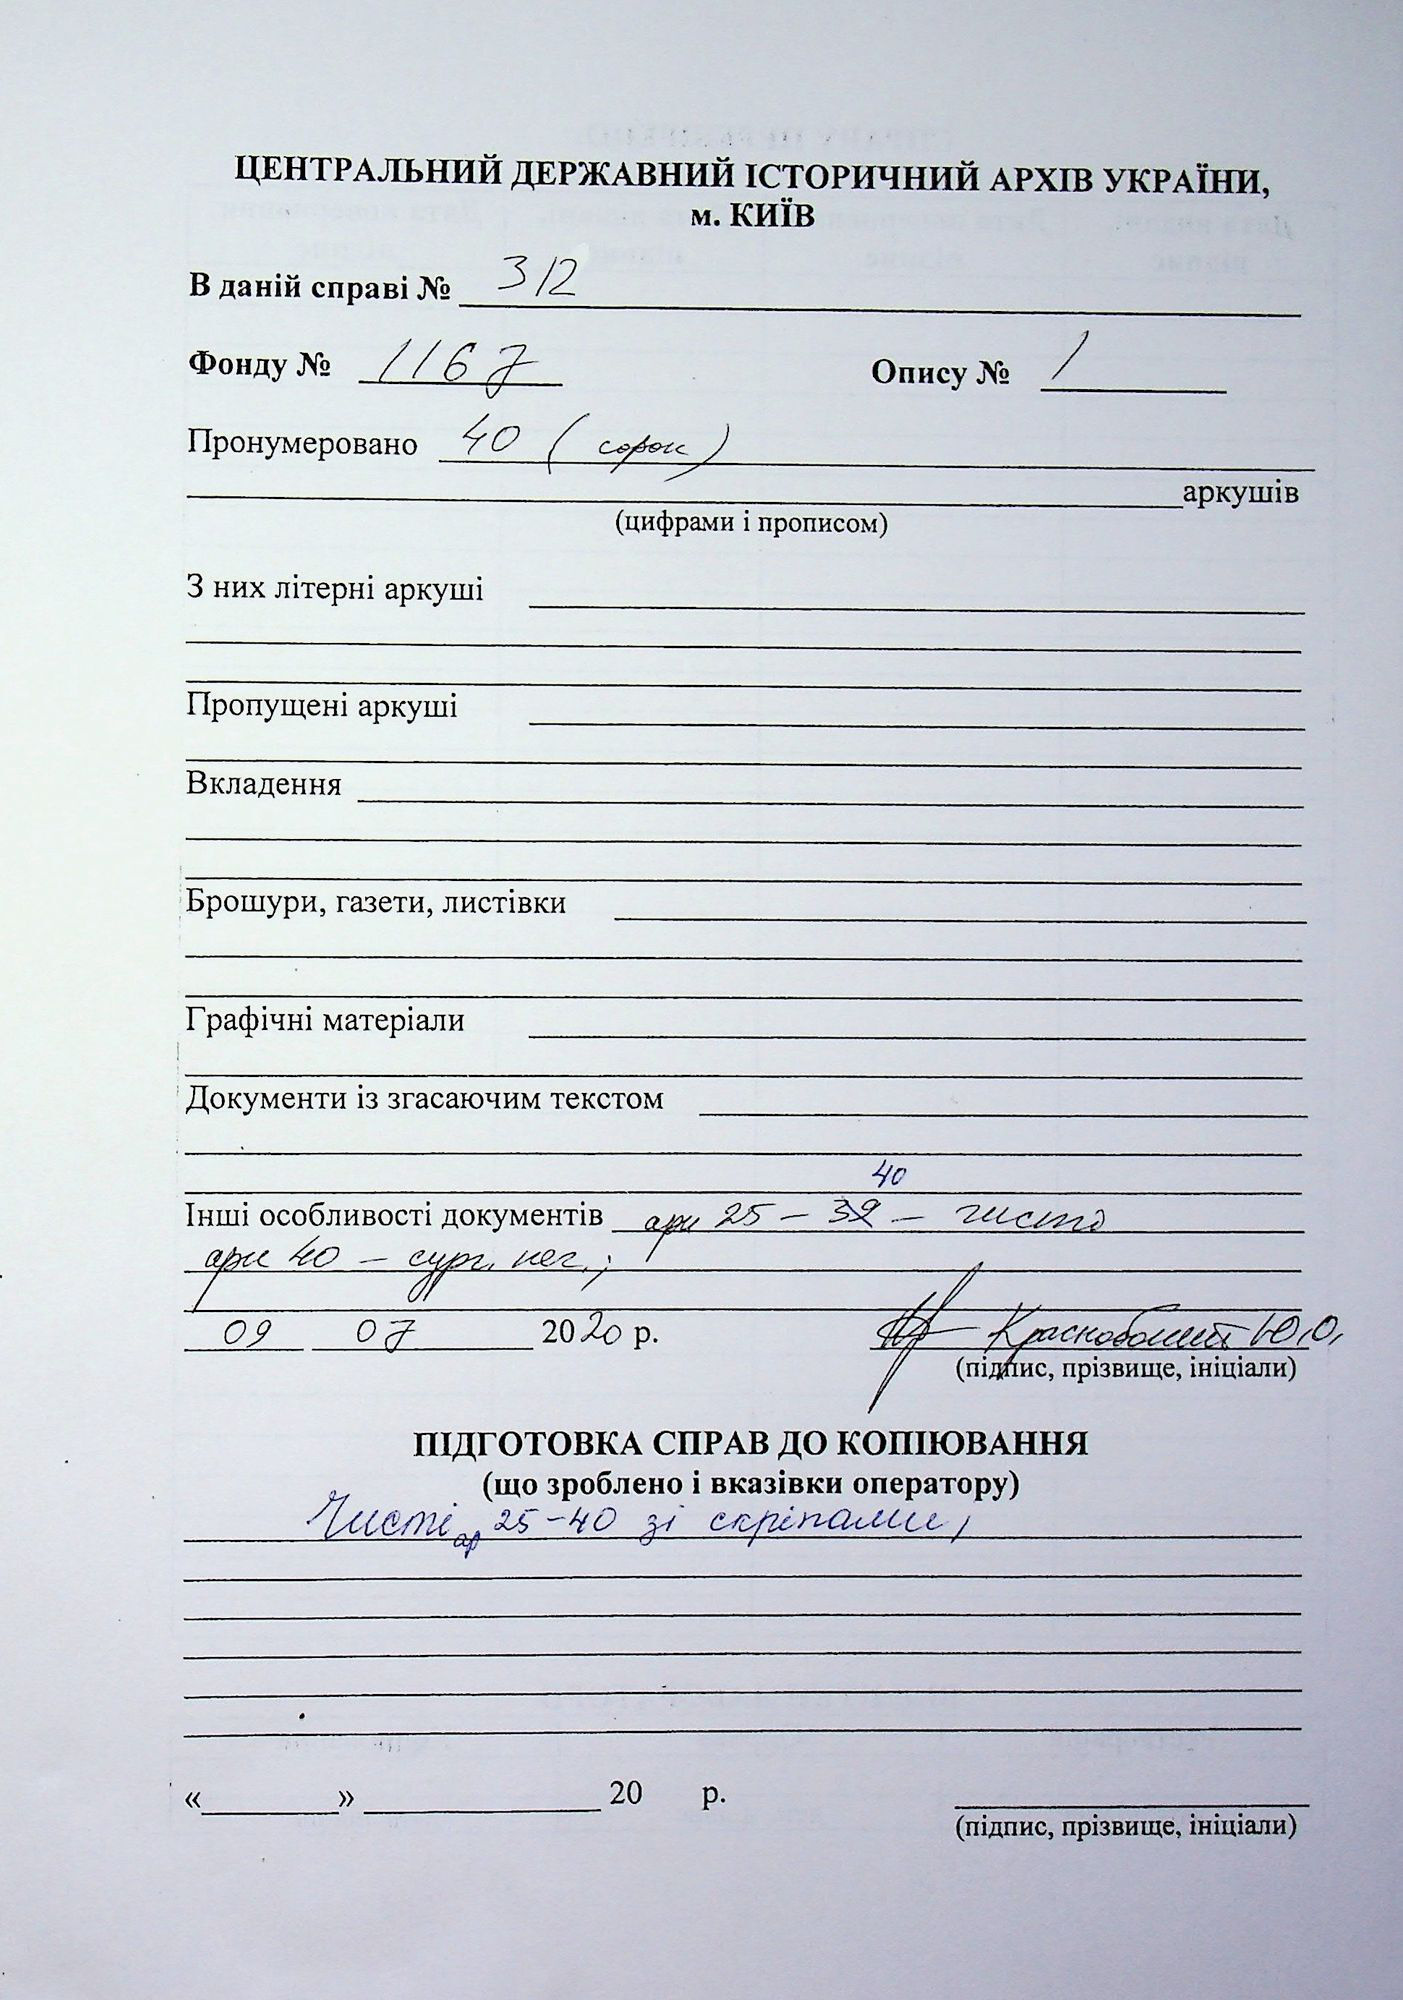 ЦЕНТРАЛЬНИЙ ДЕРЖАВНИЙ ІСТОРИЧНИЙ АРХІВ УКРАЇНИ,
м. КИЇВ
В даній справі № 312
Фонду № 1167 Опису № 1
Пронумеровано 40 (сорок)
аркушів
(цифрами і прописом)
З них літерні аркуші
Пропущені аркуші
Вкладення
Брошури, газети, листівки
Графічні матеріали
Документи із згасаючим текстом
40
Інші особливості документів арк 25 – 39 – чисто
арк 40 – сург. печ.;
09 07 2020 р.
Ю.О.
(підпис, прізвище, ініціали)
ПІДГОТОВКА СПРАВ ДО КОПІЮВАННЯ
(що зроблено і вказівки оператору)
Чисті ар 25-40 зі скріпами,
«  »  20  р.
(підпис, прізвище, ініціали)